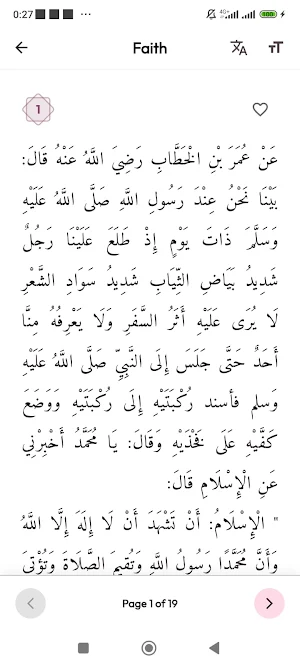 0:27
4G+
Faith
1
عَنْ عُمَرَ بْنِ الْخَطَّابِ رَضِيَ اللَّهُ عَنْهُ قَالَ:
بَيْنَا نَحْنُ عِنْدَ رَسُولِ اللَّهِ صَلَّى اللَّهُ عَلَيْهِ
وَسَلَّمَ ذَاتَ يَوْمٍ إِذْ طَلَعَ عَلَيْنَا رَجُلٌ
شَدِيدُ بَيَاضِ الثِّيَابِ شَدِيدُ سَوَادِ الشَّعْرِ
لَا يُرَى عَلَيْهِ أَثَرُ السَّفَرِ وَلَا يَعْرِفُهُ مِنَّا
أَحَدٌ حَتَّى جَلَسَ إِلَى النَّبِيِّ صَلَّى اللَّهُ عَلَيْهِ
وَسلم فأسند رُكْبَتَيْهِ إِلَى رُكْبَتَيْهِ وَوَضَعَ
كَفَّيْهِ عَلَى فَخْذَيْهِ وَقَالَ: يَا مُحَمَّدُ أَخْبِرْنِي
عَنِ الْإِسْلَامِ قَالَ:
" الْإِسْلَامُ: أَنْ تَشْهَدَ أَنْ لَا إِلَهَ إِلَّا اللَّهُ
وَأَنَّ مُحَمَّدًا رَسُولُ اللَّهِ وَتُقِيمَ الصَّلَاةَ وَتُؤْتِيَ
Page 1 of 19